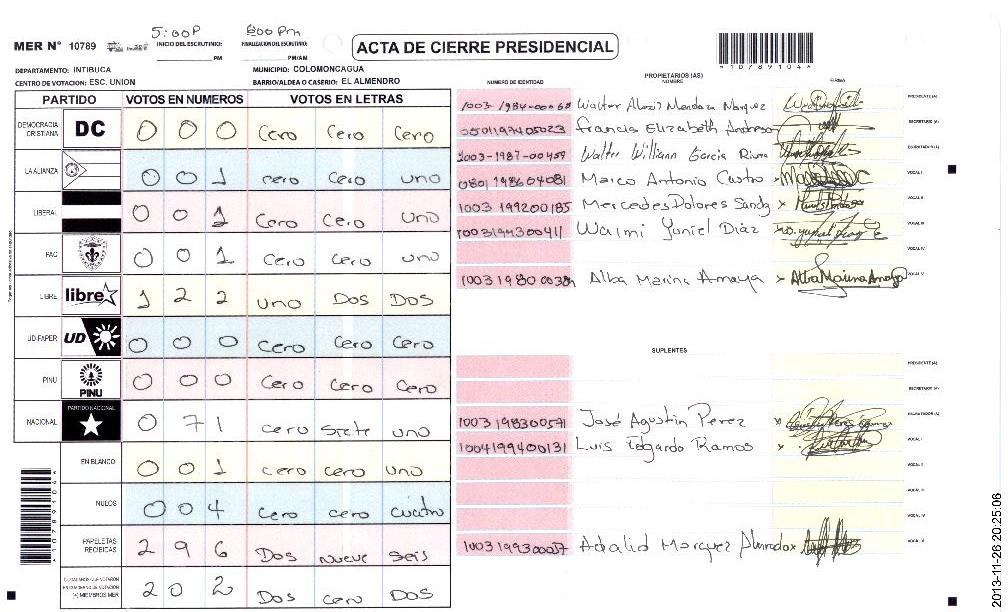 5:00P 800 Pm
MER N° 10789 INICIO DEL ESCRUTINIO: FINALIZACIÓN DEL ESCRUTINIO: ACTA DE CIERRE PRESIDENCIAL
PM PM/AM
*10789104*
DEPARTAMENTO: INTIBUCA MUNICIPIO: COLOMONCAGUA
CENTRO DE VOTACION: ESC. UNION BARRIO/ALDEA O CASERIO: EL ALMENDRO
PROPIETARIOS (AS)
NUMERO DE IDENTIDAD NOMBRE FIRMA
PARTIDO VOTOS EN NUMEROS VOTOS EN LETRAS
DEMOCRACIA CRISTIANA DC 0 0 0 Cero Cero Cero
LA ALIANZA 0 0 1 cero Cero uno
LIBERAL 0 0 1 Cero Cero uno
PAC 0 0 1 Cero Cero uno
LIBRE libre 1 2 2 uno Dos Dos
UD-FAPER UD 0 0 0 Cero Cero Cero
PINU PINU 0 0 0 Cero Cero Cero
NACIONAL PARTIDO NACIONAL 0 7 1 cero Siete uno
EN BLANCO 0 0 1 cero cero uno
NULOS 0 0 4 cero cero cuatro
PAPELETAS RECIBIDAS 2 9 6 Dos nueve seis
CIUDADANOS QUE VOTARON EN CUADERNO DE VOTACION (+) MIEMBROS MER 2 0 2 Dos cero Dos
1003-1984-00068 Walter Alexi Mendoza Marquez PRESIDENTE (A)
0501197405023 Francis Elizabeth SECRETARIO (A)
1003-1987-00459 Walter William Garcia Rivera ESCRUTADOR (A)
0801198604081 Marco Antonio Castro VOCAL I
1003199200185 Mercedes Dolores VOCAL II
1003194300411 Walmi Yuniel Diaz VOCAL III
VOCAL IV
1003198000384 Alba Marina Amaya Alba Marina Amaya VOCAL V
SUPLENTES
PRESIDENTE (A)
SECRETARIO (A)
1003198300571 José Agustin Perez ESCRUTADOR (A)
1004199400131 Luis Edgardo Ramos VOCAL I
VOCAL II
VOCAL III
VOCAL IV
Adalid Marquez VOCAL V
*10789104*
2013-11-26 20:25:06